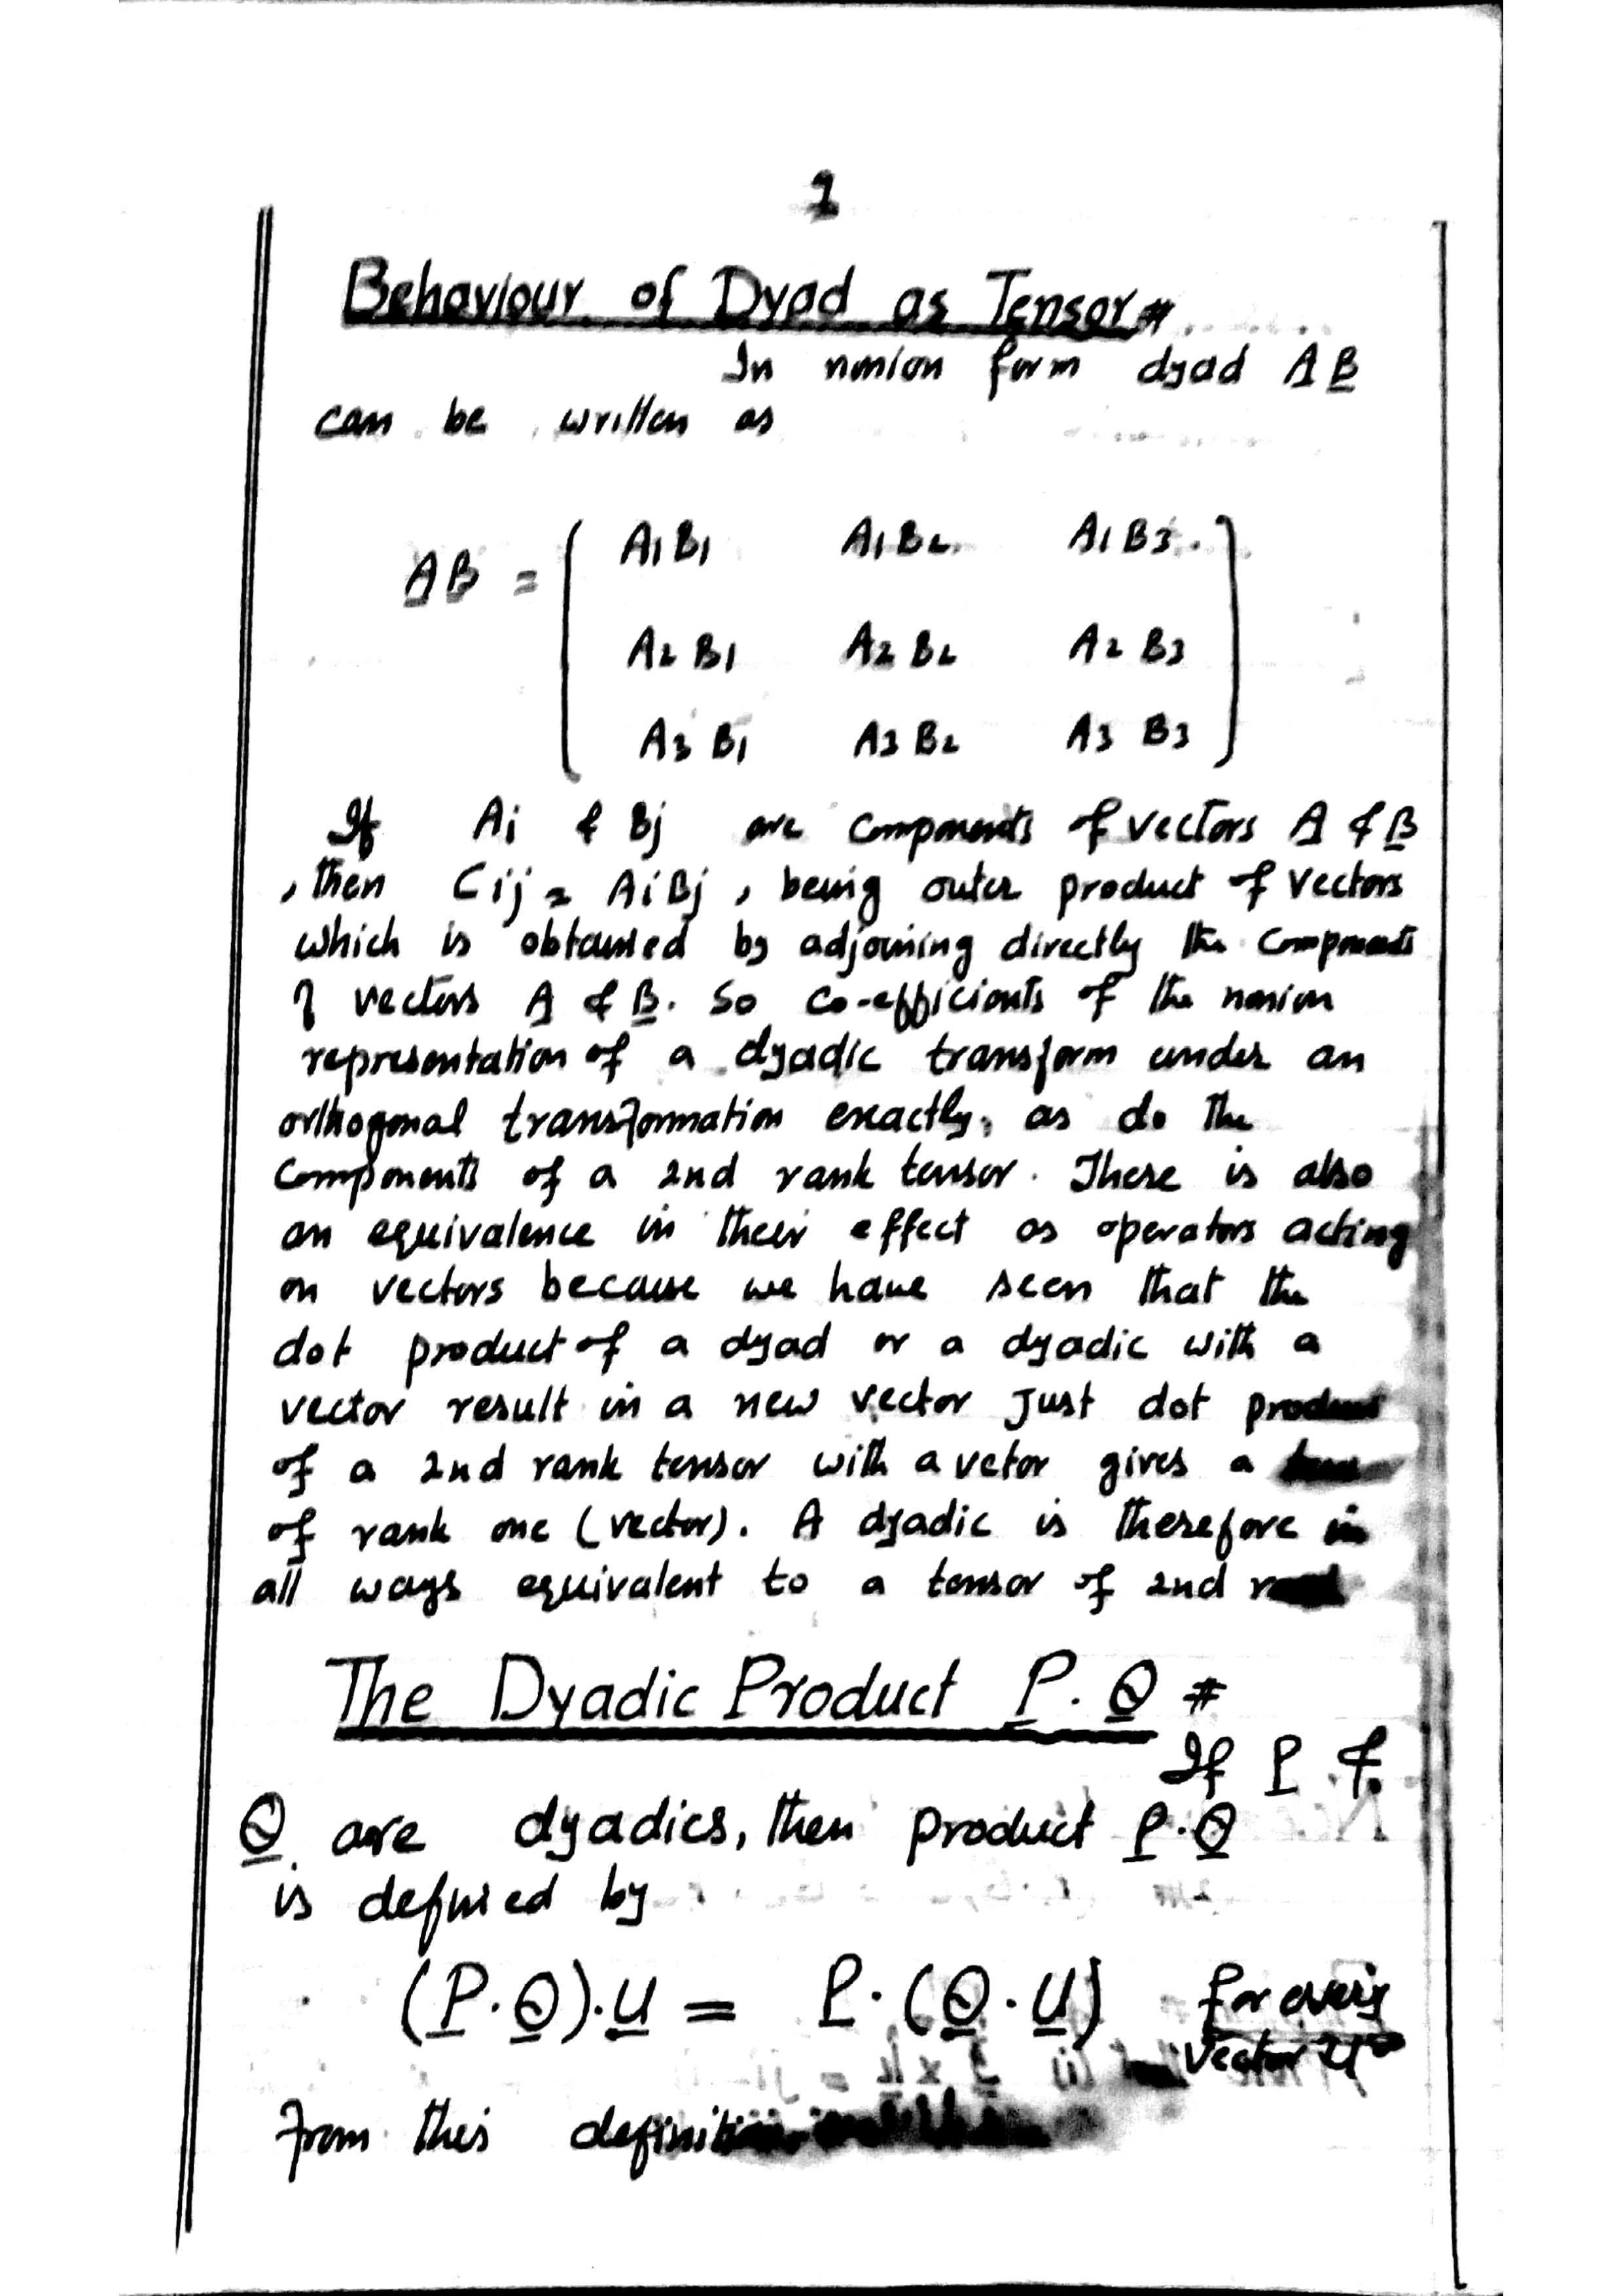 1
Behaviour of Dyad as Tensor #
In nonion form dyad A B
can be written as
AB = ( A1B1 A1B2 A1B3
A2 B1 A2 B2 A2 B3
A3 B1 A3 B2 A3 B3 )
If Ai & Bj are components of vectors A & B
, then Cij = AiBj , being outer product of vectors
which is obtained by adjoining directly the components
of vectors A & B. So co-efficients of the nonion
representation of a dyadic transform under an
orthogonal transformation exactly, as do the
components of a 2nd rank tensor. There is also
an equivalence in their effect as operators acting
on vectors because we have seen that the
dot product of a dyad or a dyadic with a
vector result in a new vector Just dot product
of a 2nd rank tensor with a vetor gives a
of rank one (vector). A dyadic is therefore in
all ways equivalent to a tensor of 2nd
The Dyadic Product P. Q #
If P &
Q are dyadics, then product P.Q
is defined by
(P.Q).U = P.(Q.U) for every
vector U
From this definition